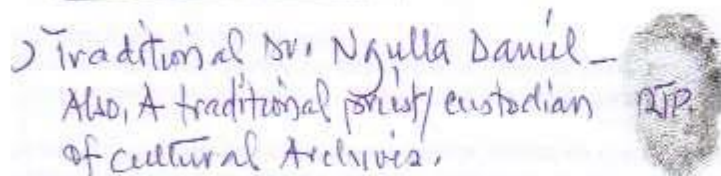 ) Traditional Dr. Ngulla Daniel – RTP.
Also, A traditional priest/custodian
of Cultural Archives.